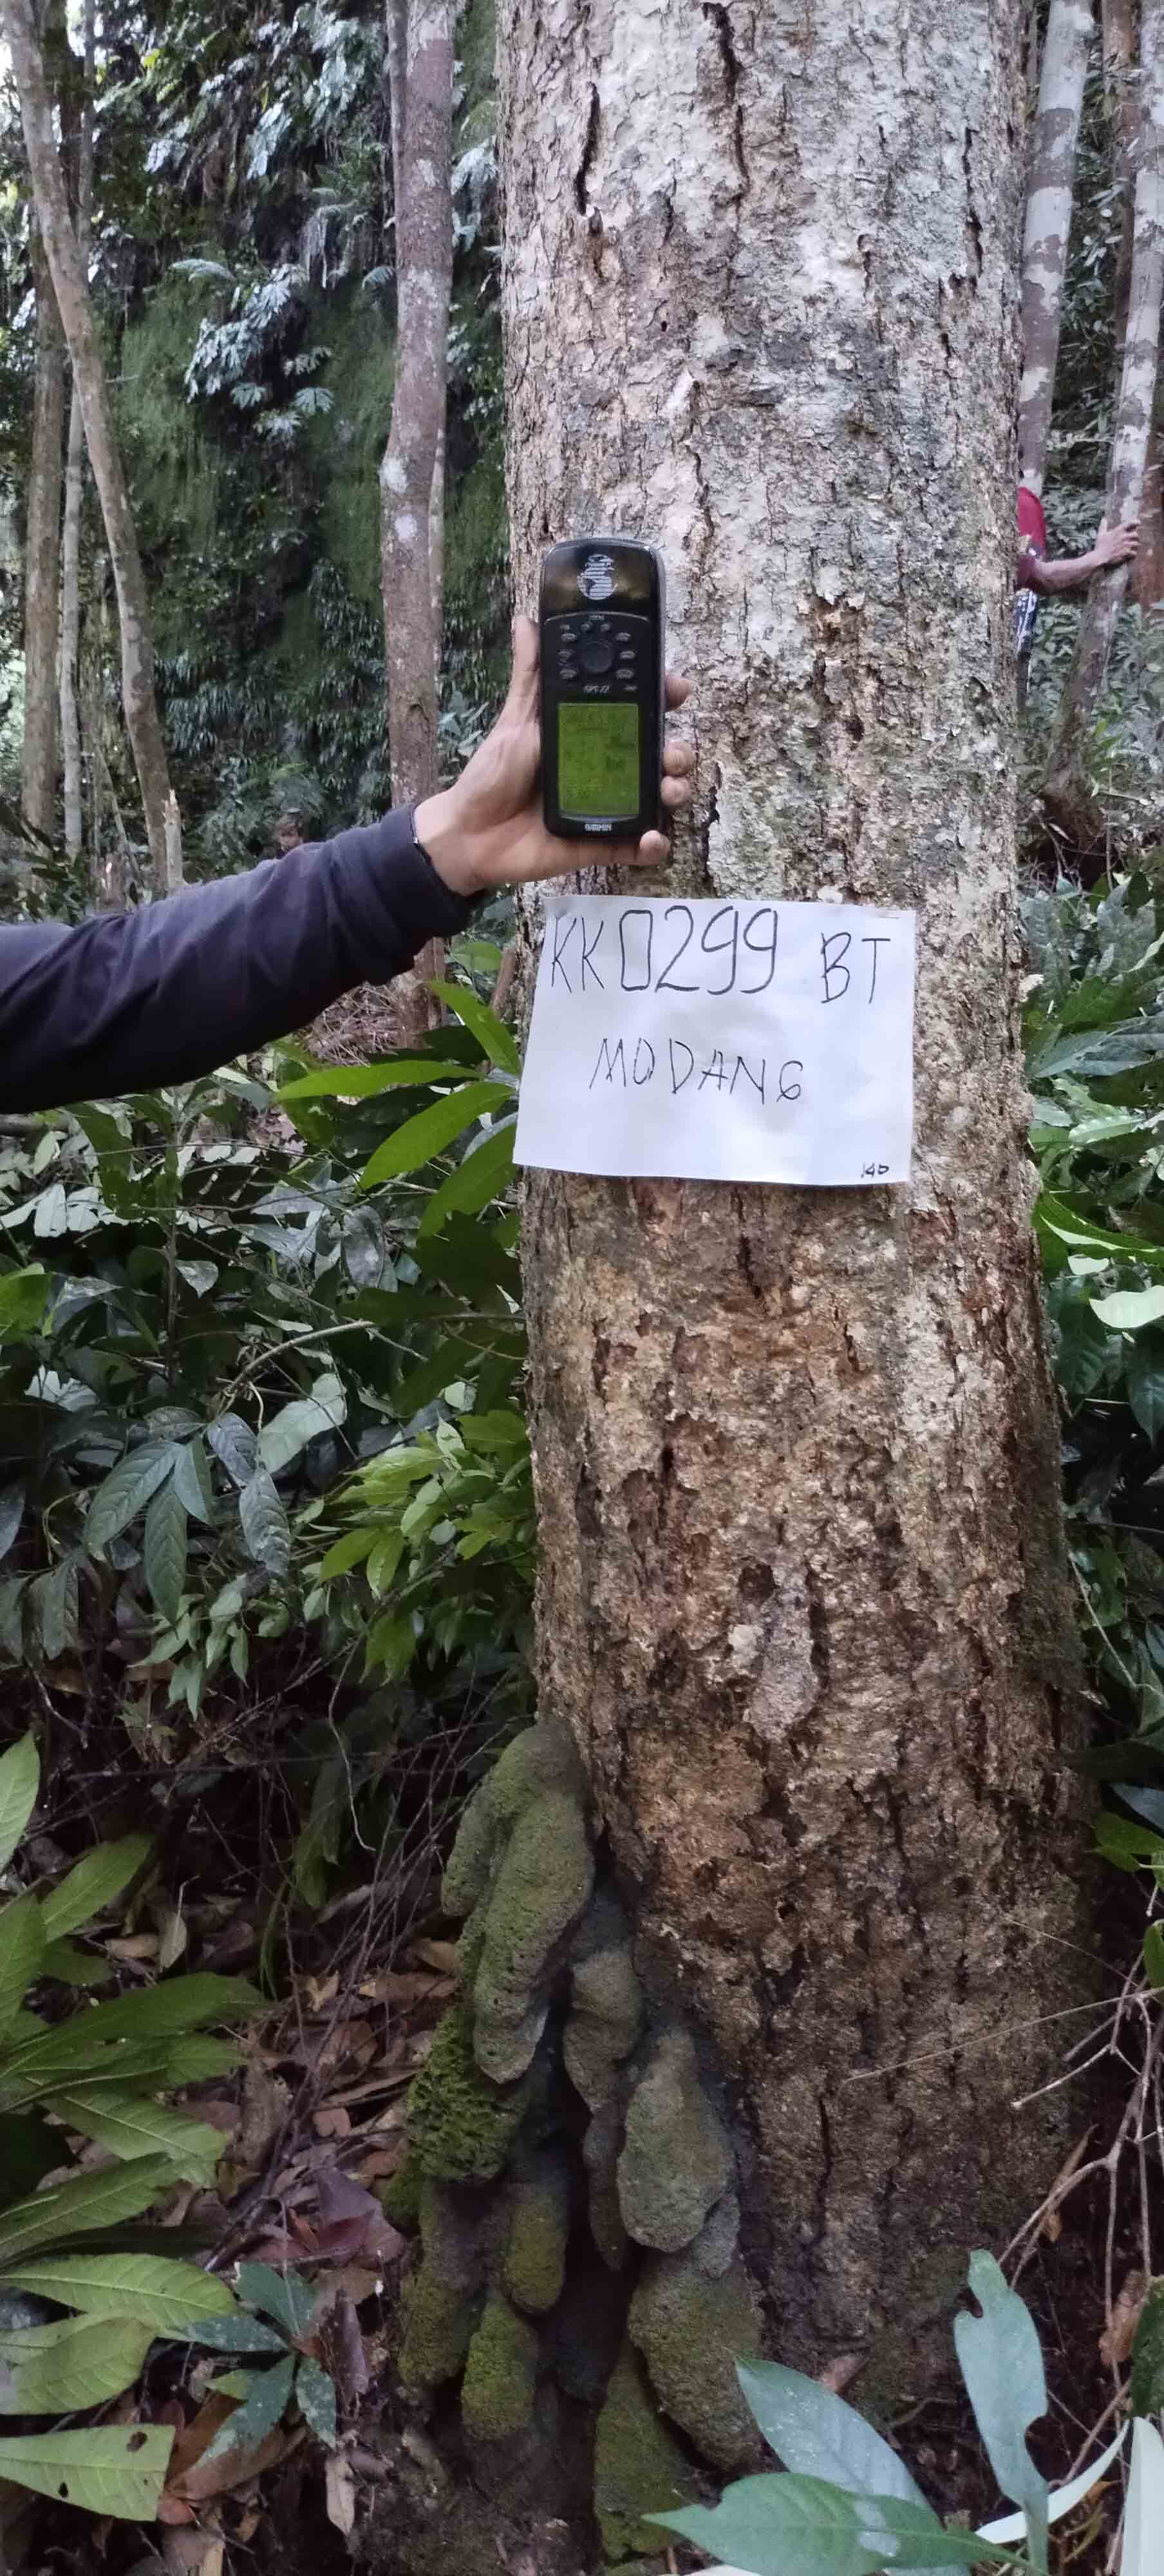 GARMIN
KK0299 BT
MODANG
140